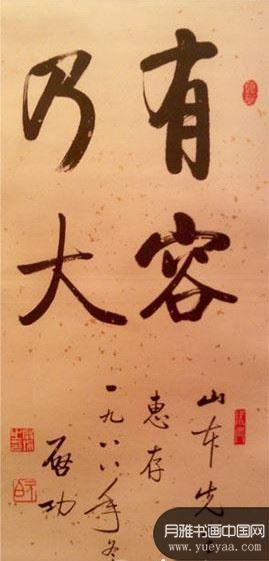 有容
乃大
山本先
惠存
一九八八年冬
启功
月雅书画中国网
www.yueyaa.com